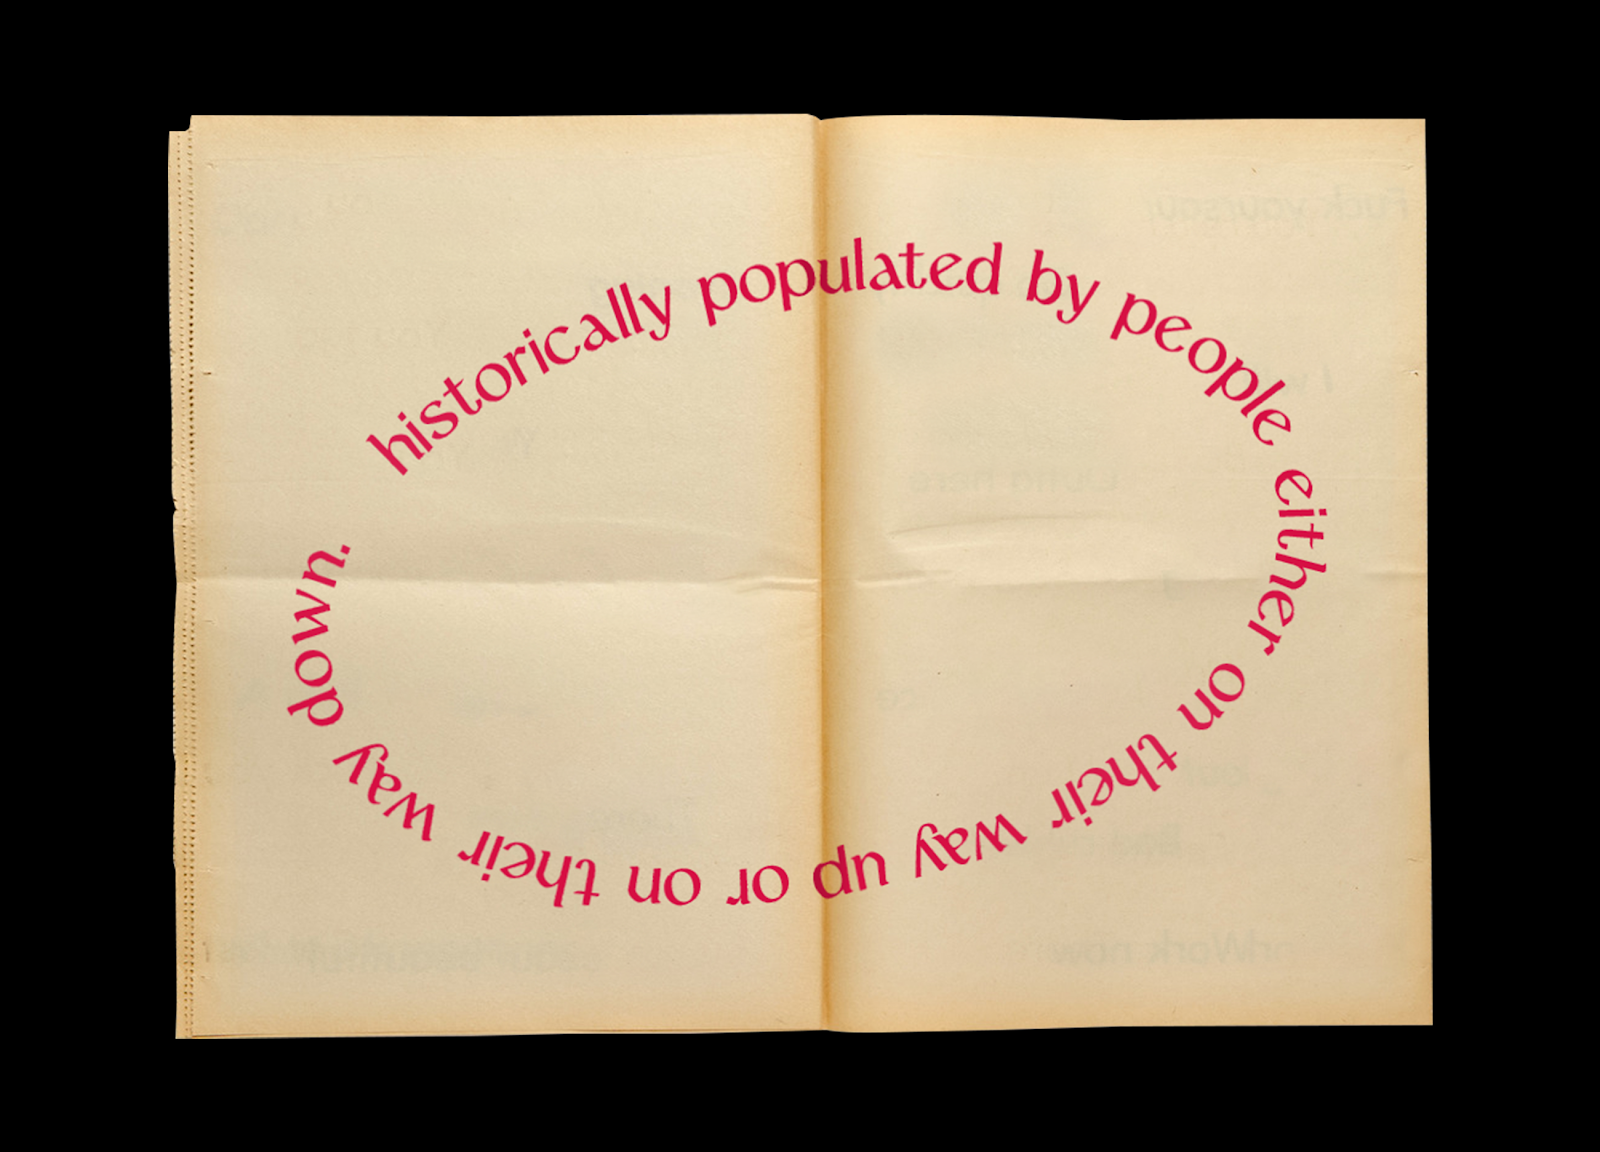 historically populated by people either on their way up or on their way down.